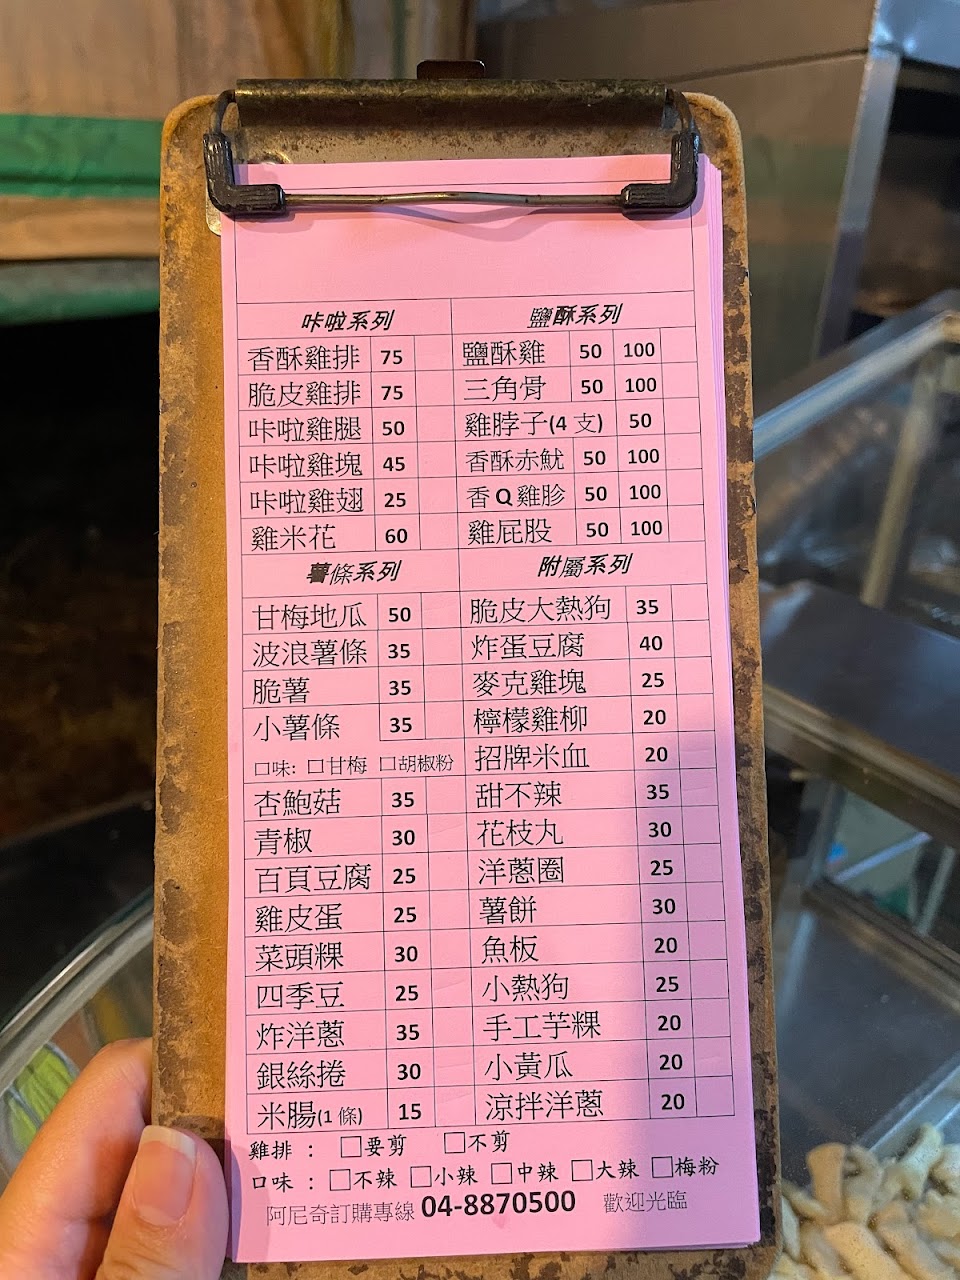 咔啦系列 鹽酥系列
香酥雞排 75 鹽酥雞 50 100
脆皮雞排 75 三角骨 50 100
咔啦雞腿 50 雞脖子(4 支) 50
咔啦雞塊 45 香酥赤魷 50 100
咔啦雞翅 25 香Q雞胗 50 100
雞米花 60 雞屁股 50 100
薯條系列 附屬系列
甘梅地瓜 50 脆皮大熱狗 35
波浪薯條 35 炸蛋豆腐 40
脆薯 35 麥克雞塊 25
小薯條 35 檸檬雞柳 20
口味: □甘梅 □胡椒粉 招牌米血 20
杏鮑菇 35 甜不辣 35
青椒 30 花枝丸 30
百頁豆腐 25 洋蔥圈 25
雞皮蛋 25 薯餅 30
菜頭粿 30 魚板 20
四季豆 25 小熱狗 25
炸洋蔥 35 手工芋粿 20
銀絲捲 30 小黃瓜 20
米腸(1 條) 15 涼拌洋蔥 20
雞排 : □要剪 □不剪
口味 : □不辣 □小辣 □中辣 □大辣 □梅粉
阿尼奇訂購專線 04-8870500 歡迎光臨